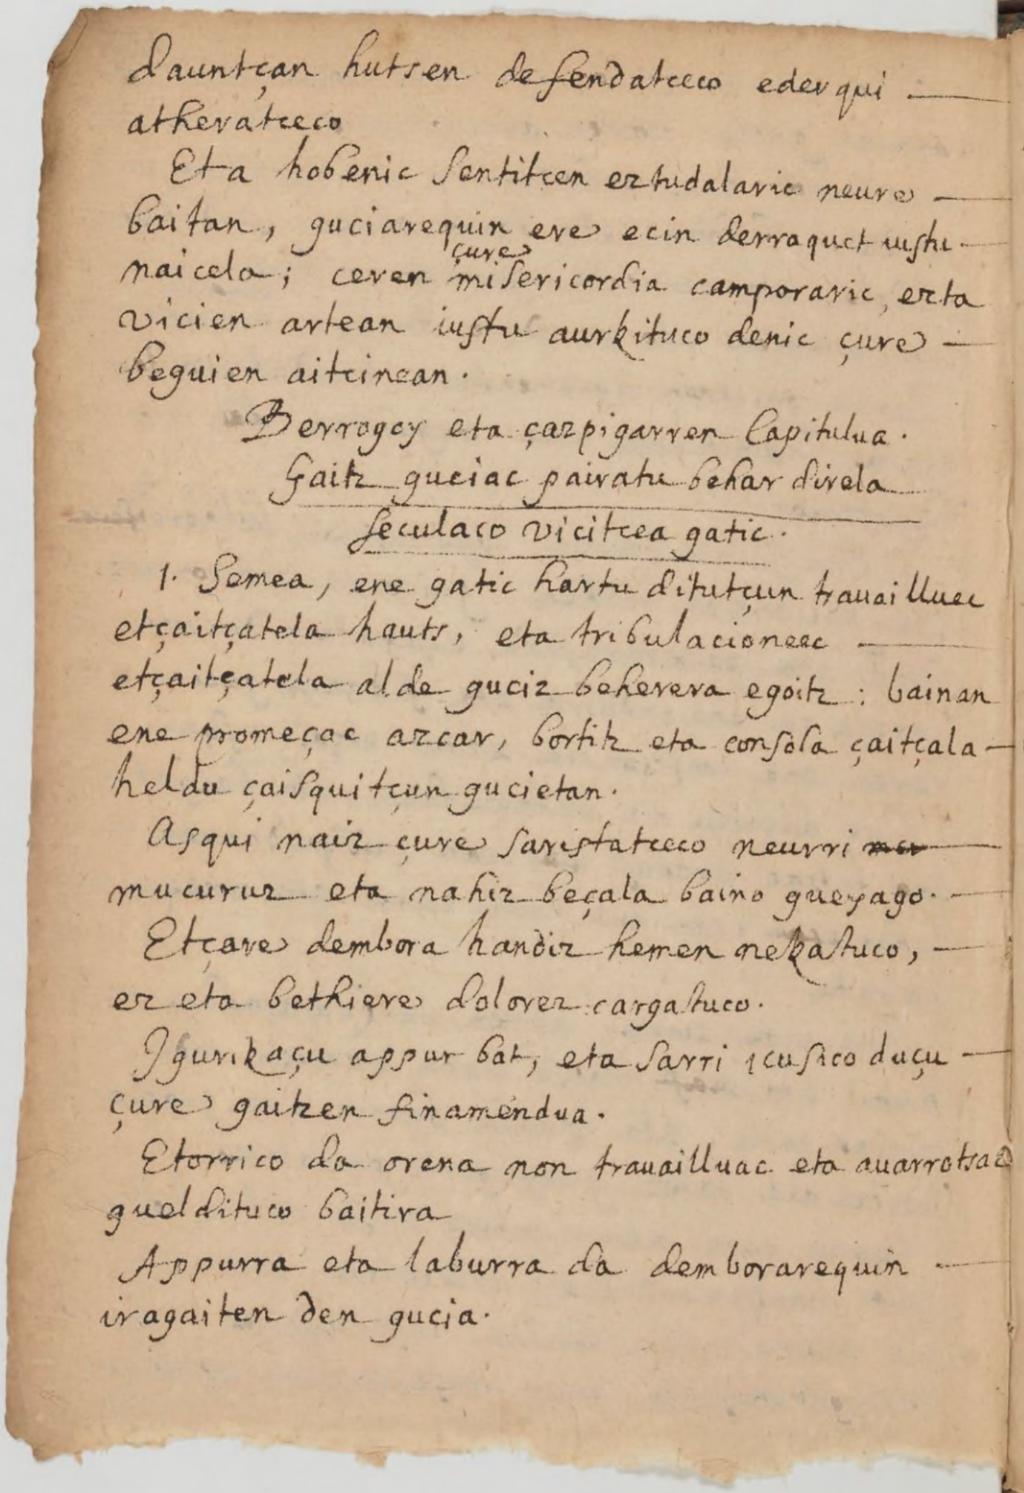 dauntçan hutsen defendatceco ederqui
atheratceco
Eta hobenic sentitcen eztudalaric neure
baitan, guciarequin ere ecin derraquet iustu
naicela; ceren çure misericordia camporaric, ezta
vicien artean iustu aurkituco denic çure
beguien aitcinean.
Berrogoy eta çazpigarren Capitulua.
Gaitz guciac pairatu behar direla
seculaco vicitcea gatic.
1. Semea, ene gatic hartu ditutçun trauailluec
etçaitçatela hauts, eta tribulacioneec
etçaitçatela alde guciz beherera egoitz: bainan
ene promeçac azcar, bortitz eta consola çaitçala
heldu çaisquitçun gucietan.
Asqui naiz çure saristatceco neurri mu
mucuruz eta nahiz beçala baino gueyago.
Etçare dembora handiz hemen nekatuco,
ez eta bethiere dolorez cargatuco.
Igurikaçu appur bat, eta sarri icusico duçu
çure gaitzen finamendua.
Etorrico da orena non trauailluac eta auarrotsac
gueldituco baitira
Appurra eta laburra da demborarequin
iragaiten den gucia.